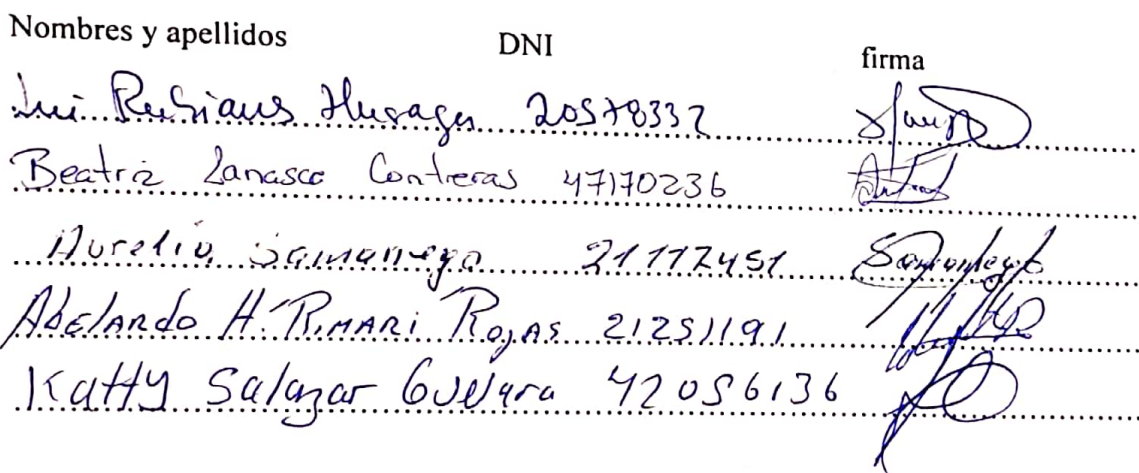 Nombres y apellidos DNI firma
Lui Rubiaus Husaga 20578332
Beatriz Lanasca Contreras 47170236
Aurelio Samaniego 21117451
Abelardo H. Rimari Rojas 21251191
Katty Salazar Guevara 42056136